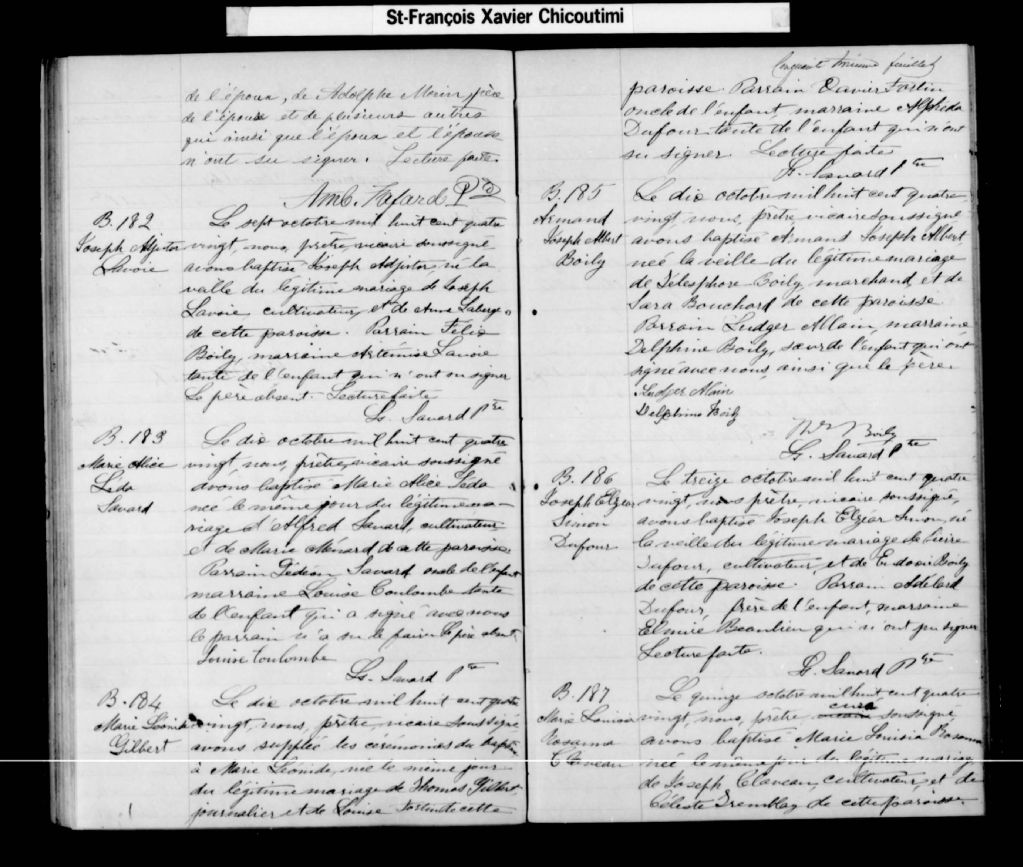 St-François Xavier Chicoutimi
de l'époux, de Adolphe Morin père
de l'épouse et de plusieurs autres
qui ainsi que l'époux et l'épouse
n'ont su signer. Lecture faite.
Amb. Fafard Ptre
B. 182
Joseph Adjutor
Lavoie
Le sept octobre mil huit cent quatre
vingt, nous, prêtre, vicaire soussigné
avons baptisé Joseph Adjutor, né la
veille du légitime mariage de Joseph
Lavoie cultivateur, et de Anne
de cette paroisse. Parrain Félix
Boily, marraine Artémise Lavoie
tante de l'enfant qui n'ont su signer
Le père absent. Lecture faite
Ls. Savard Ptre
B. 183
Marie Alice
Léda
Savard
Le dix octobre mil huit cent quatre
vingt, nous, prêtre, vicaire soussigné
avons baptisé Marie Alice Léda
née le même jour du légitime ma-
riage d'Alfred Savard, cultivateur
et de Marie Ménard de cette paroisse.
Parrain Gédéon Savard oncle de l'enfant
marraine Louise Coulombe tante
de l'enfant qui a signé avec nous
le parrain n'a su le faire Le père absent
Louise Coulombe
Ls. Savard Ptre
B. 184
Marie Léonide
Gilbert
Le dix octobre mil huit cent quatre
vingt, nous, prêtre, vicaire soussigné
avons supplée les cérémonies du baptême
à Marie Léonide, née le même jour
du légitime mariage de Thomas Gilbert
journalier et de Louise Fortin de cette
feuillet
paroisse. Parrain Xavier Fortin
oncle de l'enfant, marraine Alphéda
Dufour tante de l'enfant qui n'ont
su signer Lecture faite
Ls. Savard Ptre
B. 185
Armand
Joseph Albert
Boily
Le dix octobre mil huit cent quatre
vingt, nous, prêtre vicaire soussigné
avons baptisé Armand Joseph Albert
née la veille du légitime mariage
de Télesphore Boily, marchand et de
Sara Bouchard de cette paroisse
Parrain Ludger Allain, marraine
Delphine Boily, sœur de l'enfant qui ont
signé avec nous, ainsi que le père
Ludger Alain
Delphine Boily
Boily
Ls. Savard Ptre
B. 186
Joseph Elzéar
Simon
Dufour
Le treize octobre mil huit cent quatre
vingt, nous prêtre, vicaire soussigné,
avons baptisé Joseph Elzéar Simon, né
la veille du légitime mariage de Pierre
Dufour, cultivateur, et de Eudoxie Boily
de cette paroisse. Parrain Adélard
Dufour, frère de l'enfant, marraine
Elmire Beaulieu qui n'ont pu signer
Lecture faite.
Ls. Savard Ptre
B. 187
Marie Louisia
Rosanna
Claveau
Le quinze octobre mil huit cent quatre
vingt, nous, prêtre, curé soussigné
avons baptisé Marie Louisia Rosanna
née le même jour du légitime mariage
de Joseph Claveau, cultivateur, et de
Céleste Tremblay de cette paroisse.